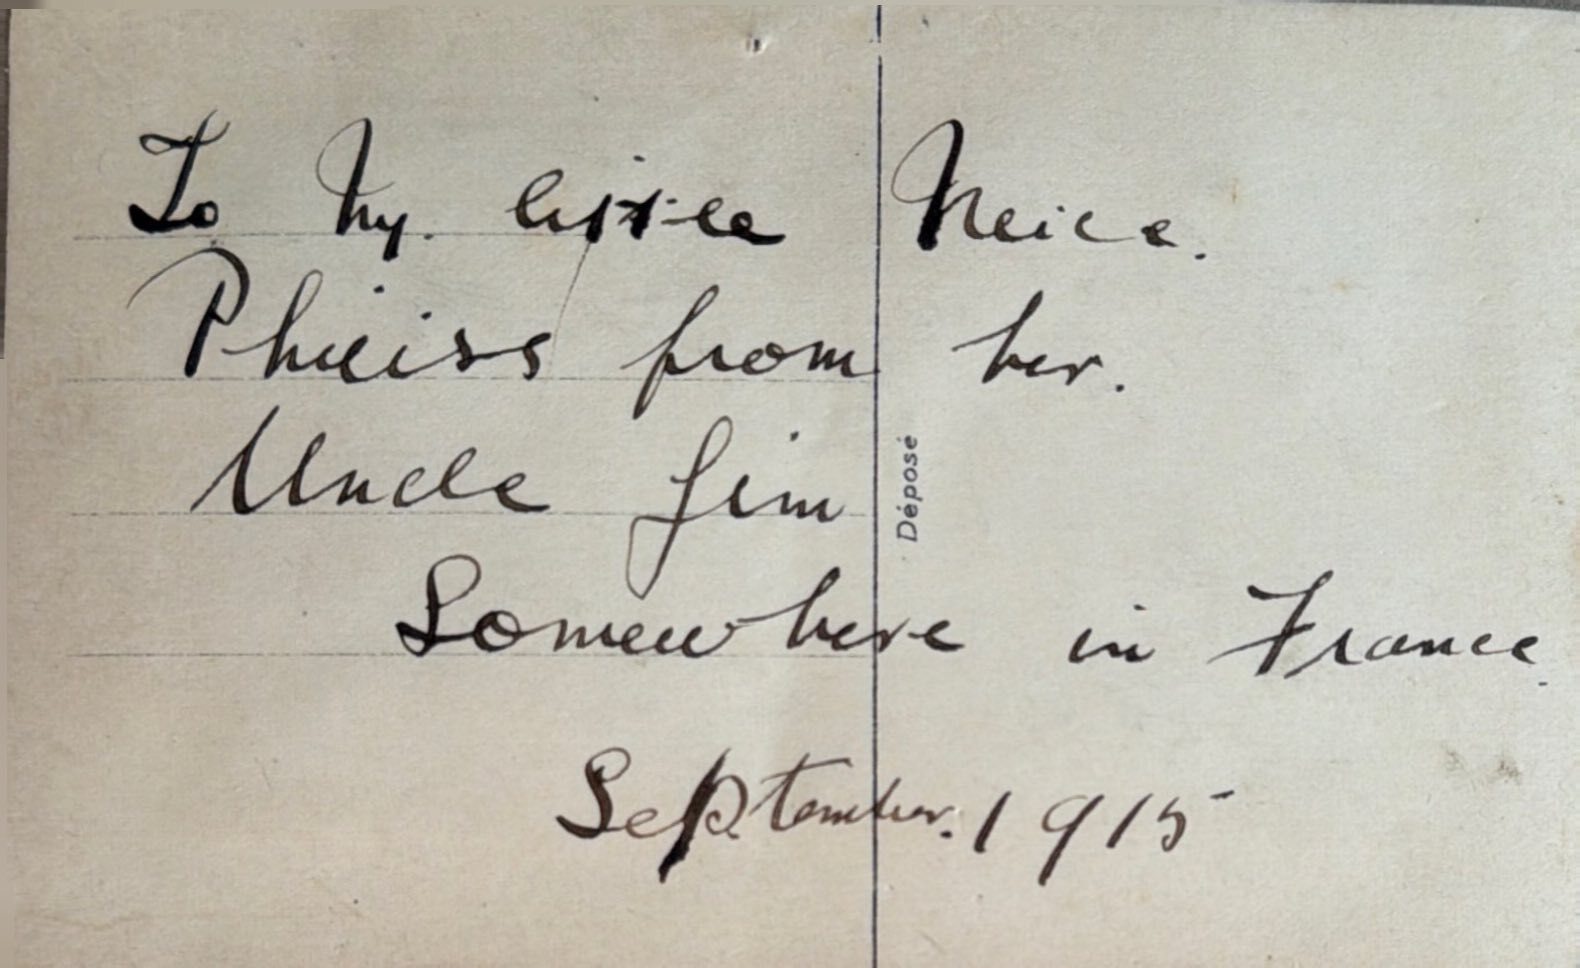 To My. little Neice.
Phliss from her.
Uncle Jim
Déposé
Somewhere in France.
September. 1915